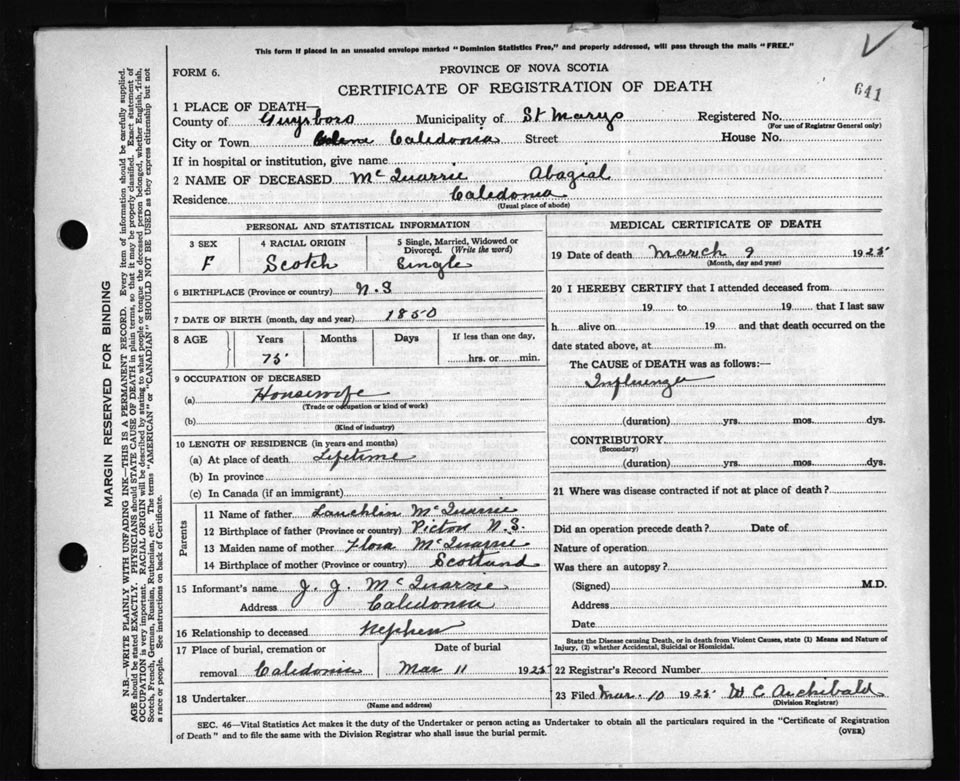 This form if placed in an unsealed envelope marked "Dominion Statistics Free," and properly addressed, will pass through the mails "FREE."
FORM 6.
PROVINCE OF NOVA SCOTIA
CERTIFICATE OF REGISTRATION OF DEATH
641
1 PLACE OF DEATH—
County of Guysboro Municipality of St Marys Registered No.
(For use of Registrar General only)
City or Town Caledonia Street House No.
If in hospital or institution, give name
2 NAME OF DECEASED McQuarrie Abagial
Residence Caledonia
(Usual place of abode)
PERSONAL AND STATISTICAL INFORMATION
3 SEX
F
4 RACIAL ORIGIN
Scotch
5 Single, Married, Widowed or
Divorced. (Write the word)
Single
6 BIRTHPLACE (Province or country) N.S
7 DATE OF BIRTH (month, day and year) 1850
8 AGE
Years Months Days If less than one day,
75 hrs. or min.
9 OCCUPATION OF DECEASED
(a) Housewife
(Trade or occupation or kind of work)
(b)
(Kind of industry)
10 LENGTH OF RESIDENCE (in years and months)
(a) At place of death Lifetime
(b) In province
(c) In Canada (if an immigrant)
Parents
11 Name of father Lauchlin McQuarrie
12 Birthplace of father (Province or country) Pictou N.S.
13 Maiden name of mother Flora McQuarrie
14 Birthplace of mother (Province or country) Scotland
15 Informant's name J. J. McQuarrie
Address Caledonia
16 Relationship to deceased Nephew
17 Place of burial, cremation or Date of burial
removal Caledonia Mar 11 1925
18 Undertaker
(Name and address)
MEDICAL CERTIFICATE OF DEATH
19 Date of death March 9 1925
(Month, day and year)
20 I HEREBY CERTIFY that I attended deceased from
19 to 19 that I last saw
h alive on 19 and that death occurred on the
date stated above, at m.
The CAUSE of DEATH was as follows:—
Influenza
(duration) yrs. mos. dys.
CONTRIBUTORY
(Secondary)
(duration) yrs. mos. dys.
21 Where was disease contracted if not at place of death?
Did an operation precede death? Date of
Nature of operation
Was there an autopsy?
(Signed) M.D.
Address
Date
State the Disease causing Death, or in death from Violent Causes, state (1) Means and Nature of
Injury, (2) whether Accidental, Suicidal or Homicidal.
22 Registrar's Record Number
23 Filed Mar. 10 1925 W C Archibald
(Division Registrar)
SEC. 46—Vital Statistics Act makes it the duty of the Undertaker or person acting as Undertaker to obtain all the particulars required in the "Certificate of Registration
of Death" and to file the same with the Division Registrar who shall issue the burial permit.
(OVER)
MARGIN RESERVED FOR BINDING
N.B.—WRITE PLAINLY WITH UNFADING INK—THIS IS A PERMANENT RECORD. Every item of information should be carefully supplied.
AGE should be stated EXACTLY. PHYSICIANS should STATE CAUSE OF DEATH in plain terms, so that it may be properly classified. Exact statement of
OCCUPATION is very important. RACIAL ORIGIN will be described by stating to what people or tongue the deceased person belonged, whether English, Irish,
Scotch, French, German, Russian, Ruthenian, etc. The terms "AMERICAN" or "CANADIAN" SHOULD NOT BE USED as they express citizenship but not
a race or people. See instructions on back of Certificate.